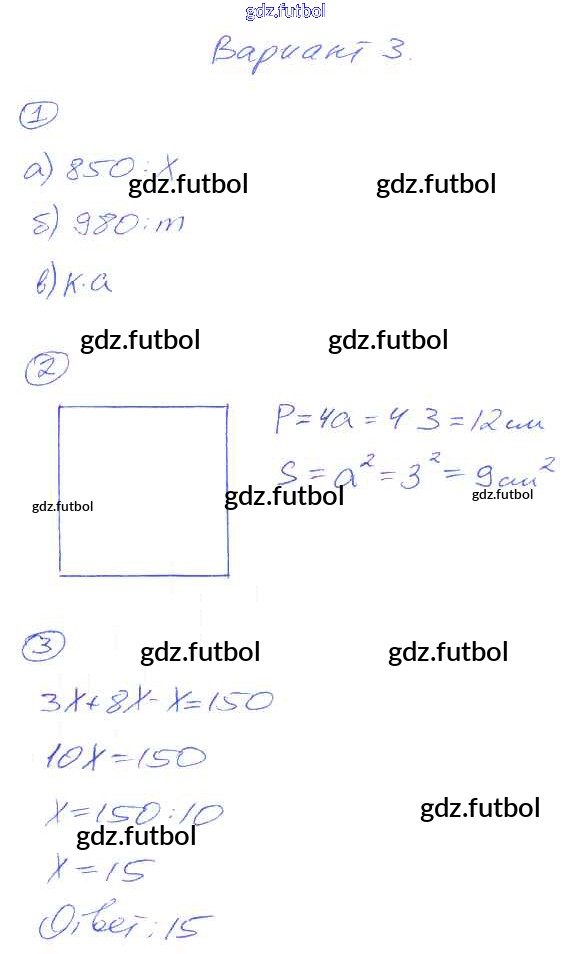 gdz.futbol
Вариант 3.
1
а) 850 : x
gdz.futbol gdz.futbol
б) 980 : m
в) к · а
gdz.futbol gdz.futbol
2
P = 4a = 4 3 = 12 см
S = a² = 3² = 9 см²
gdz.futbol gdz.futbol gdz.futbol
3
gdz.futbol gdz.futbol
3x + 8x - x = 150
10x = 150
x = 150 : 10
gdz.futbol
gdz.futbol
x = 15
Ответ: 15